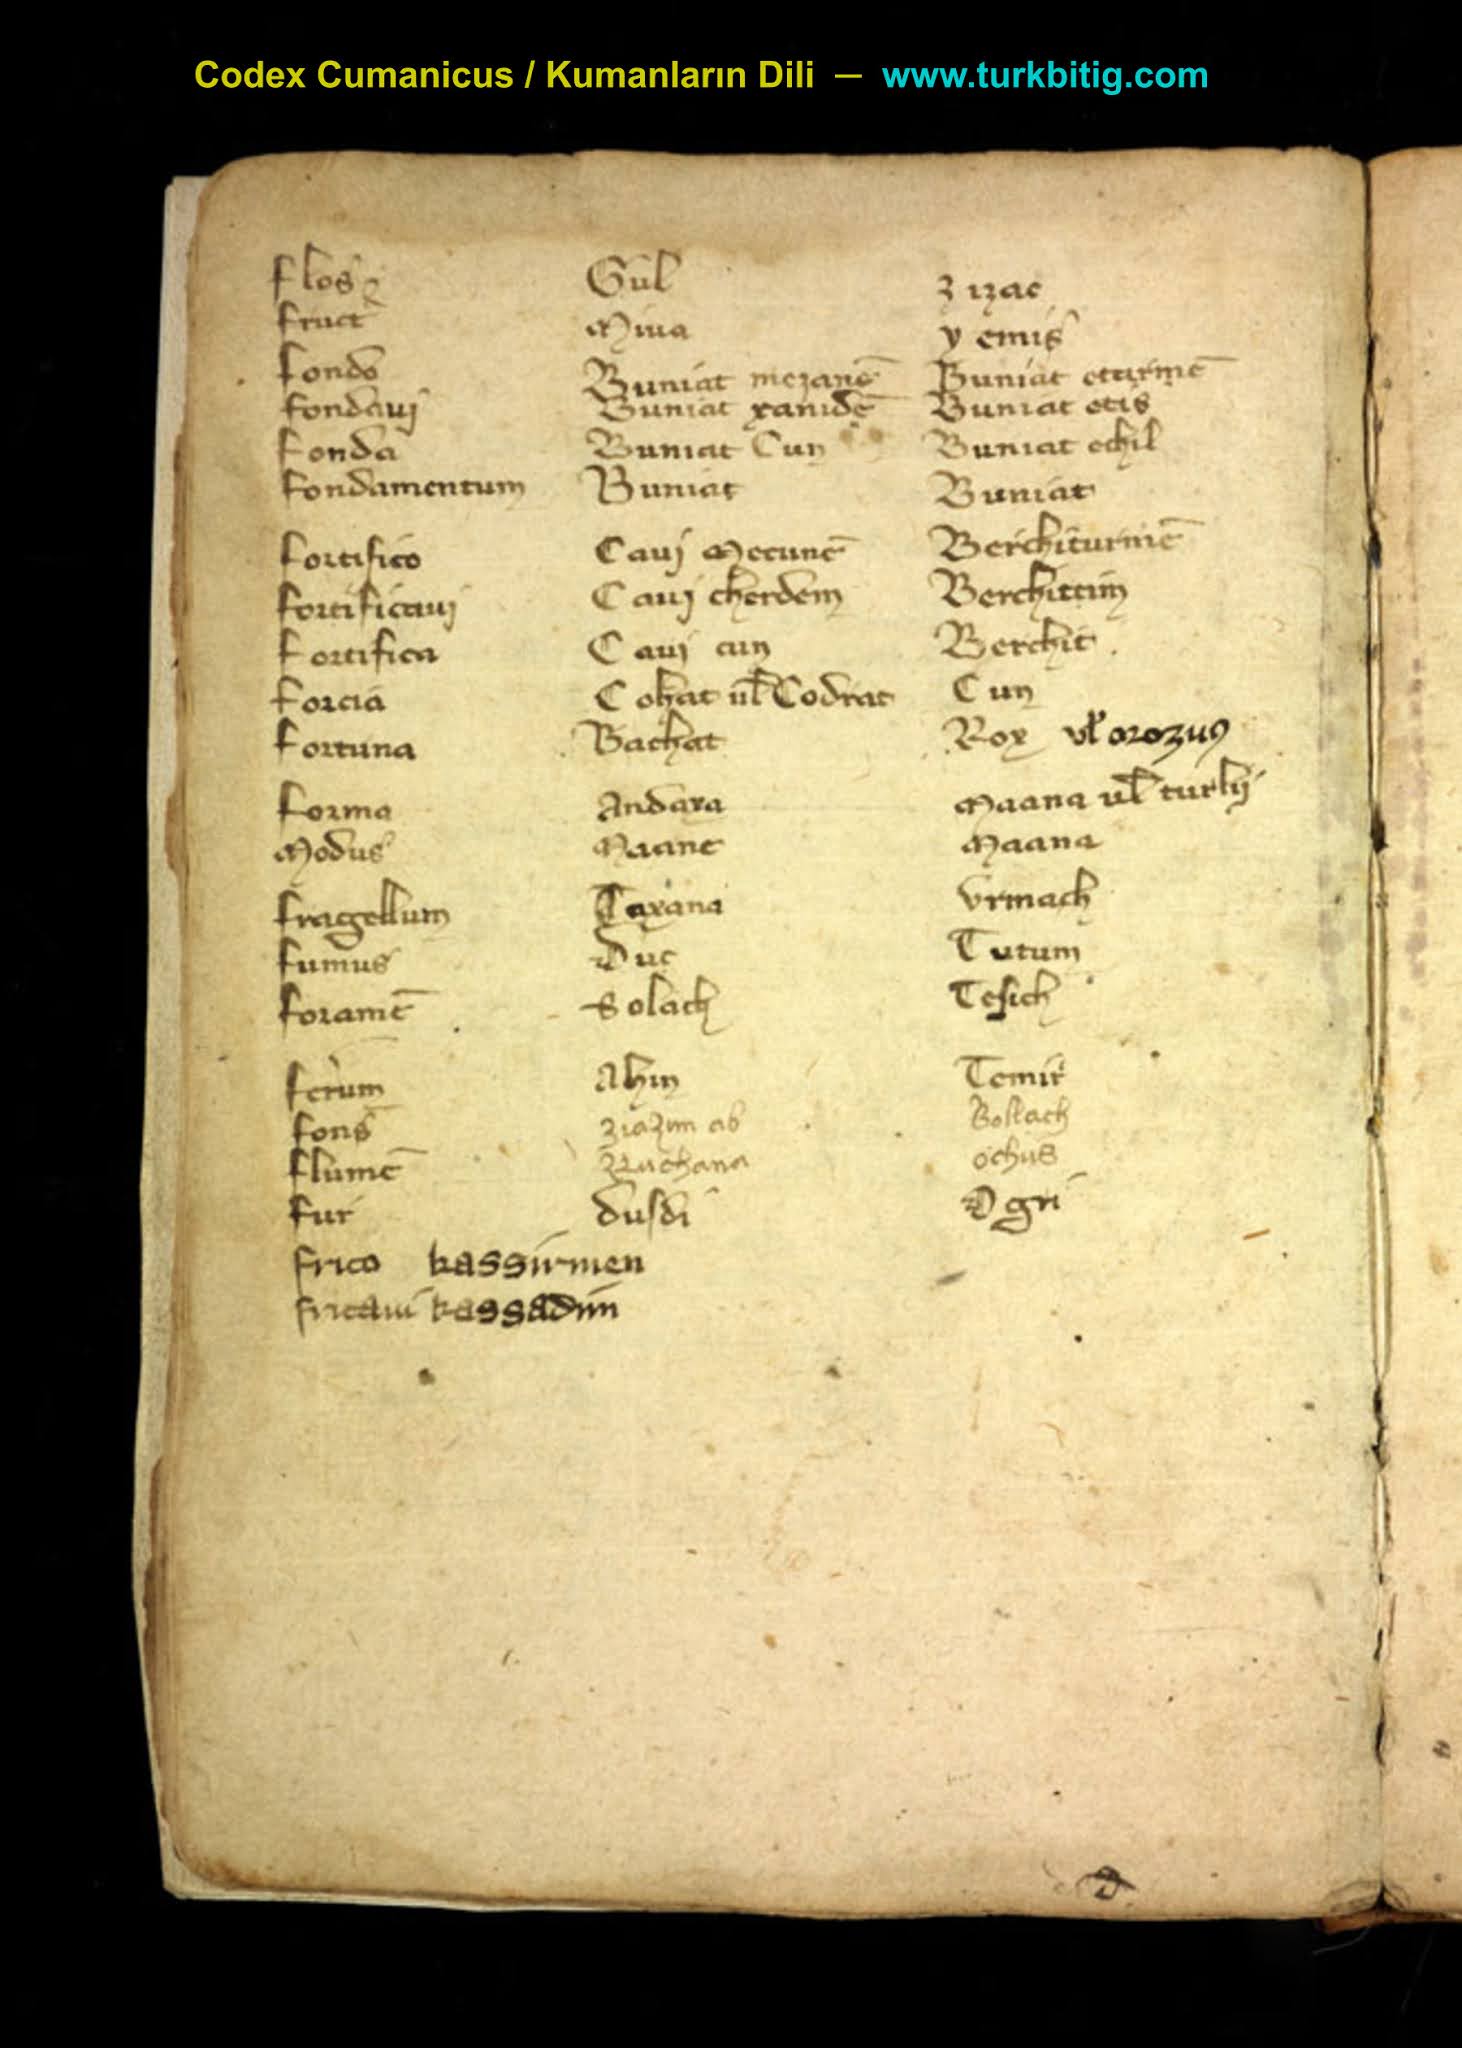 Codex Cumanicus / Kumanların Dili — www.turkbitig.com
flos Gul zizac
fruct Miua yemis
fondo Buniat mezanē Buniat eturmē
fondaui Buniat xanidē Buniat etis
fonda Buniat Cun Buniat echil
fondamentum Buniat Buniat
fortifico Caui Mecunē Berchiturmē
fortificaui Caui cherdem Berchittim
fortifica Caui cun Berchit
forcia Cohat ul Codrat Cun
fortuna Bachat Rox ul orozuq
forma Andaxa Maana ul turlij
Modus Maane Maana
fragellum Taxana Vrmach
fumus Duc Tutum
foramē Solach Tesich
ferum Ahin Temir
fons ab
flumē ochus
fur dusdi Ogri
frico kassirmen
fricaui kassadim